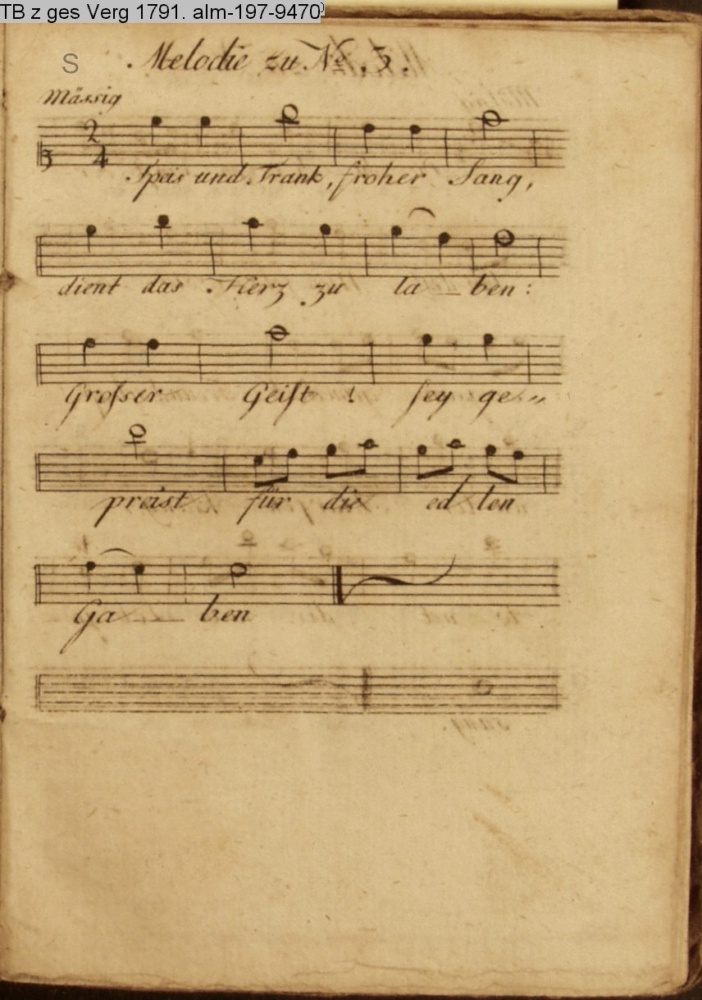 TB z ges Verg 1791. alm-197-9470
S
Melodie zu No. 3.
Mässig
2
4
Speis und Trank, froher Sang,
dient das Herz zu la_ben:
Grosser Geist! sey ge„
preist für die ed len
Ga ben